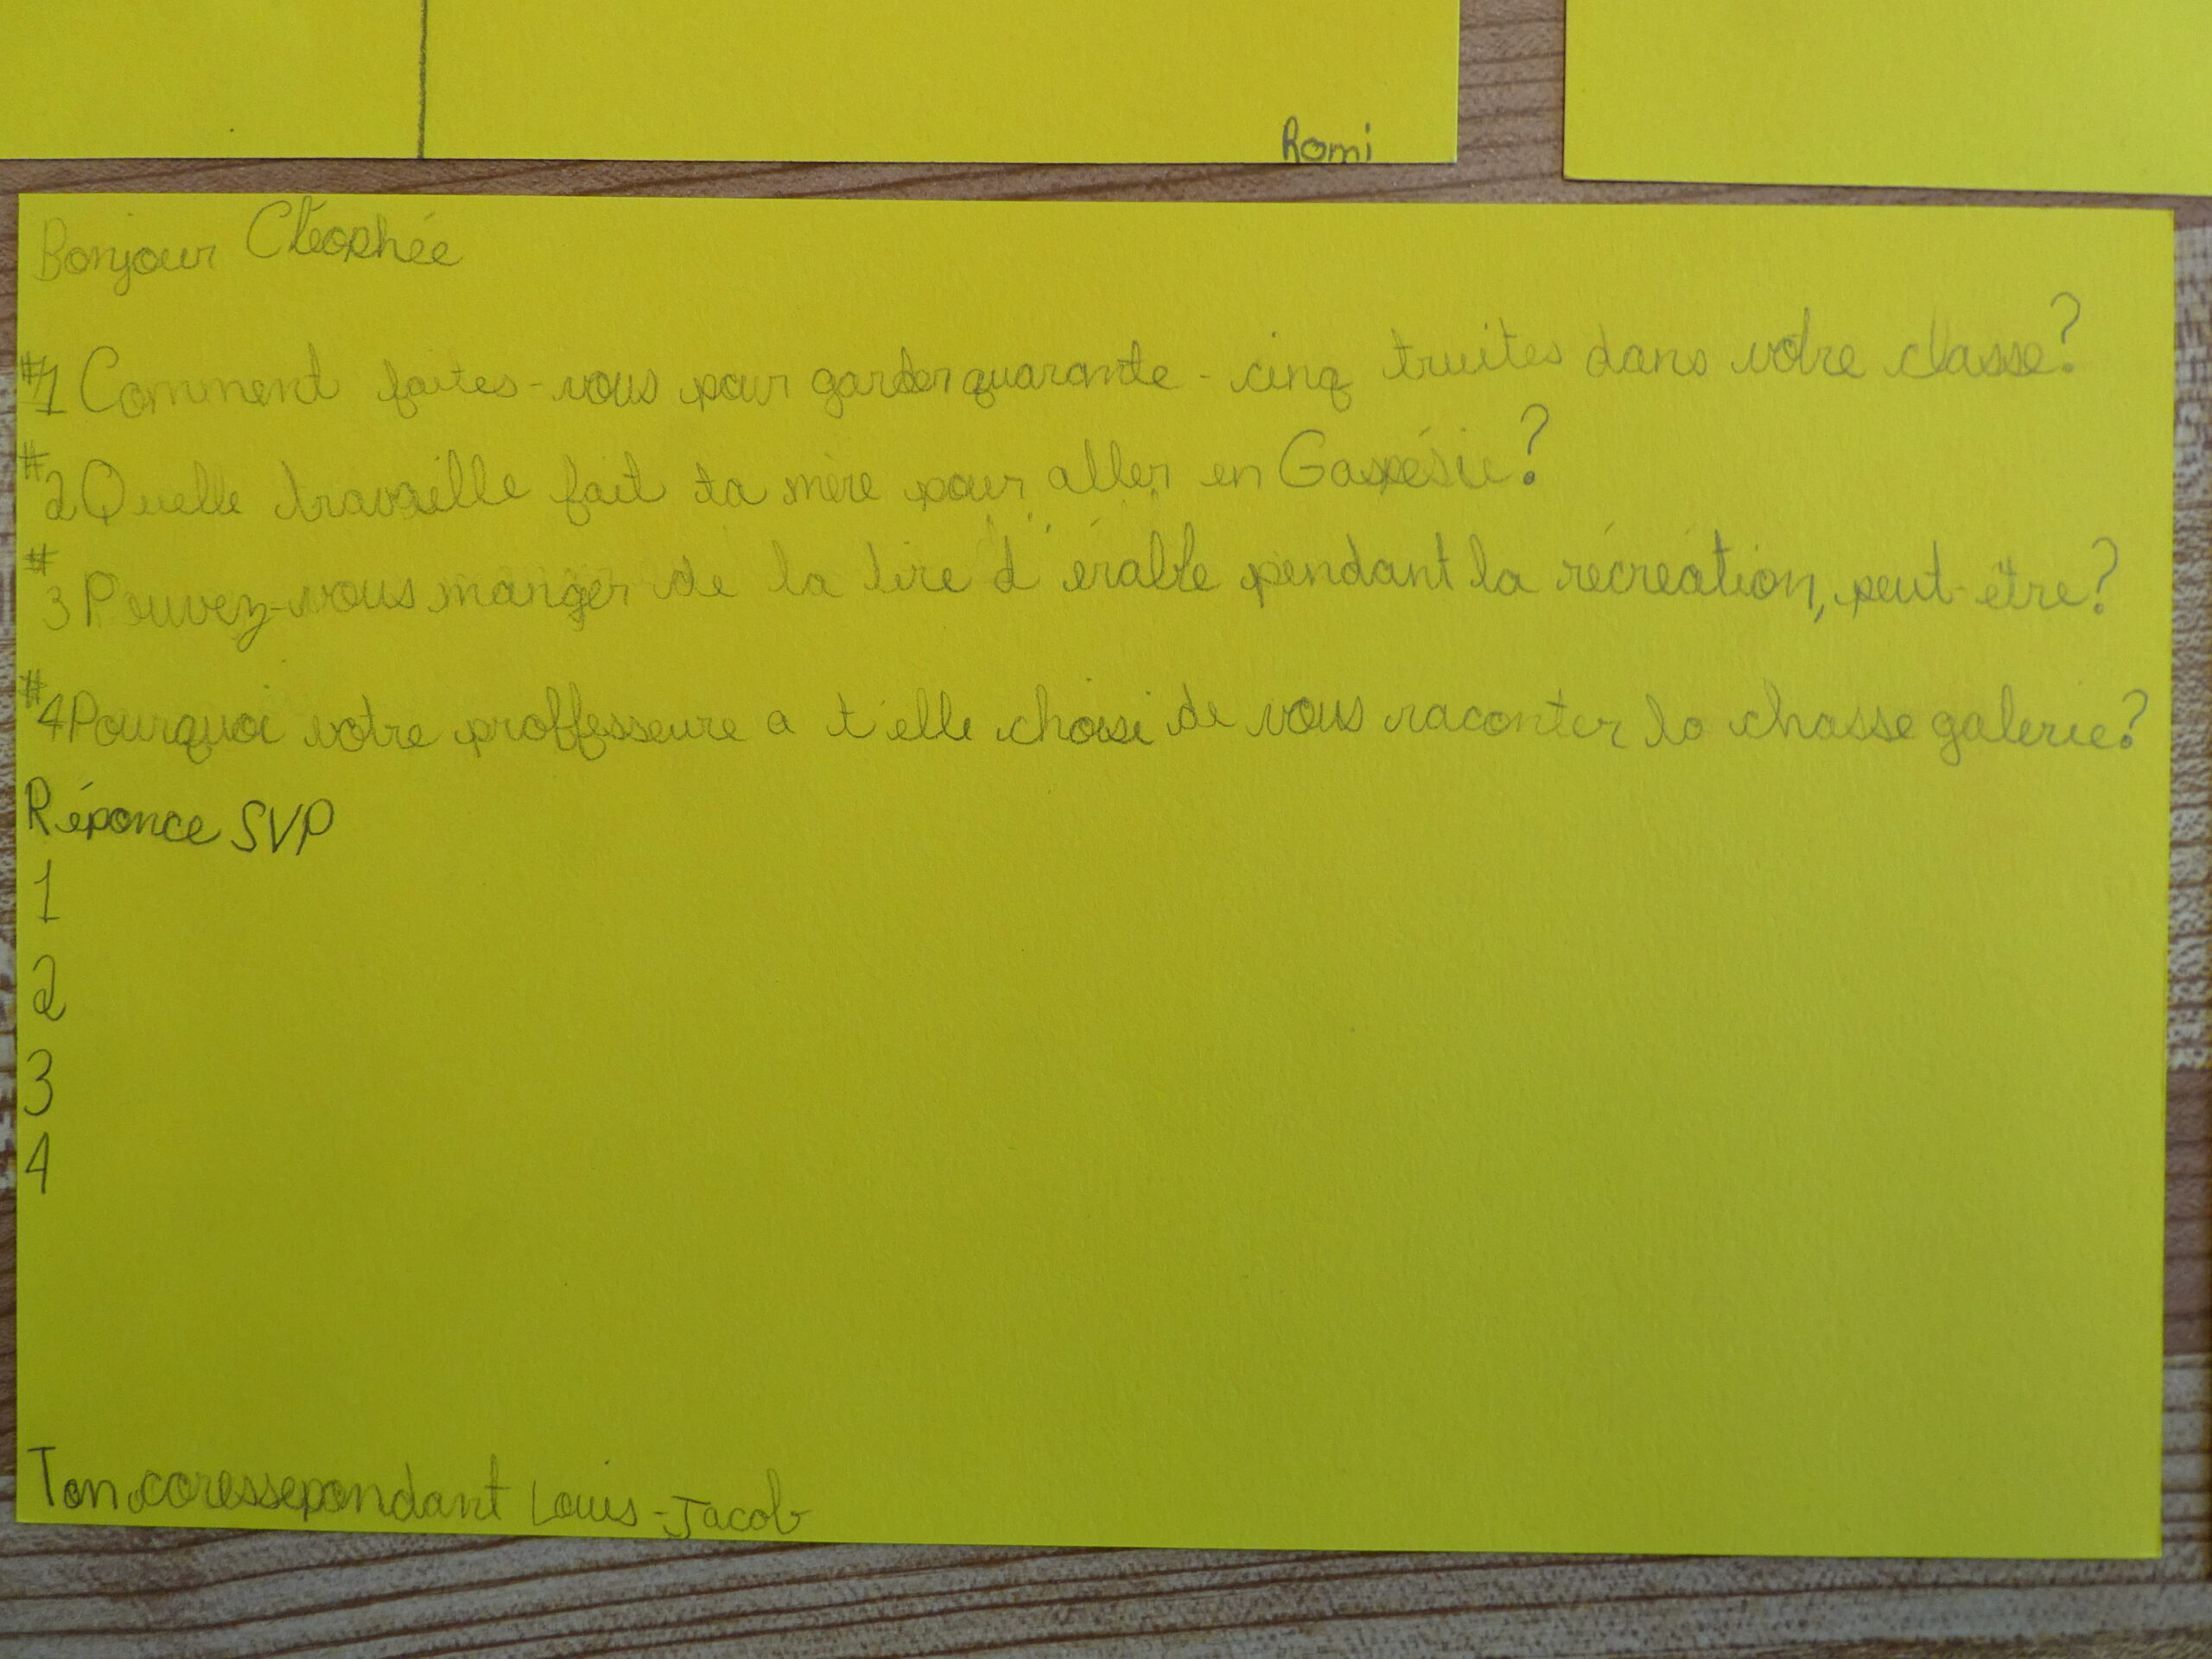 Romi
Bonjour Cléophée
#1 Comment faites-vous pour garder quarante-cinq truites dans votre classe?
#2 Quelle travaille fait ta mère pour aller en Gaspésie?
#3 Pouvez-vous manger de la tire d'érable pendant la récréation, peut-être?
#4 Pourquoi votre proffesseure a t'elle choisi de vous raconter la chasse galerie?
Réponce SVP
1
2
3
4
Ton coressepondant Louis-Jacob